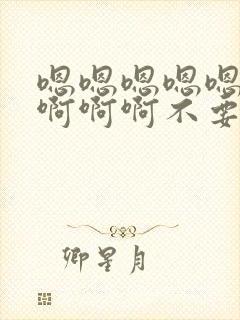 嗯嗯嗯嗯嗯
啊啊啊不要
卿星月